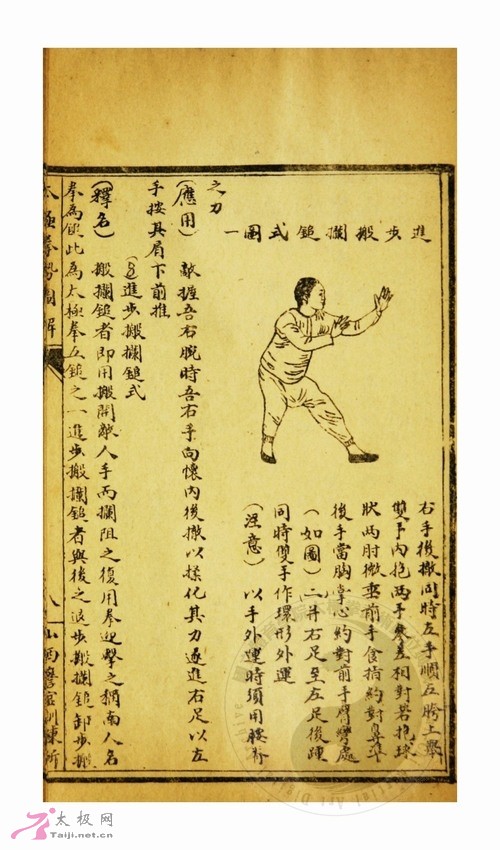 進步搬攔鎚式圖一
右手後撤同時左手順左胯上舉
雙手內抱两手參差相對若抱球
狀两肘微垂前手食指約對鼻準
後手當胸掌心約對前手臂彎處
(如圖)二并右足至左足後踵
同時雙手作環形外運
(注意)以手外運時須用腰脊
之力
(應用)敵握吾右腕時吾右手向懷內後撤以揉化其力遂進右足以左
手按其肩下前推
(8)進步搬攔鎚式
(釋名)搬攔鎚者即用搬開敵人手而攔阻之復用拳迎擊之稱南人名
拳為鎚此為太極拳五鎚之一進步搬攔鎚者與後之退步搬攔鎚卸步搬
太極拳勢圖解
八
山西警官訓練所
太极网
Taiji.net.cn